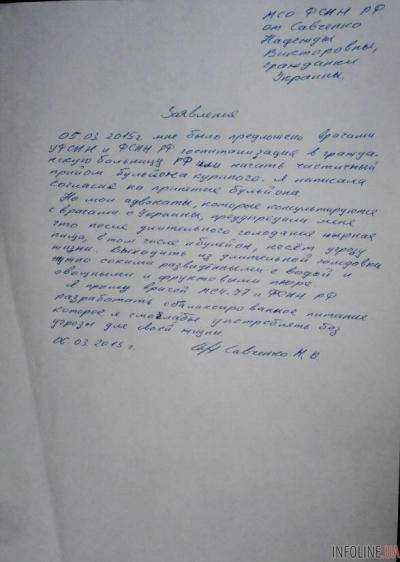 МСО ФСИН РФ
от Савченко
Надежды
Викторовны,
гражданки
Украины.
Заявление
05.03.2015г. мне было предложено врачами
УФСИН и ФСИН РФ госпитализация в гражда-
нскую больницу РФ или начать частичный
приём бульйона куриного. Я написала
согласие на принятие бульйона.
Но мои адвокаты, которые консультируются
с врачами с Украины, предупредили меня
что после длительного голодания жирная
пища, в том числе и бульйон, несёт угрозу
жизни. Выходить из длительной голодовки
нужно соками разведёнными с водой и
овощными и фруктовыми пюре.
Я прошу врачей МСЧ-77 и ФСИН РФ
разработать сбалансированное питание
которое я смогла бы употреблять без
угрозы для своей жизни.
06.03.2015г. Савченко Н. В.
INFOLINE.UA